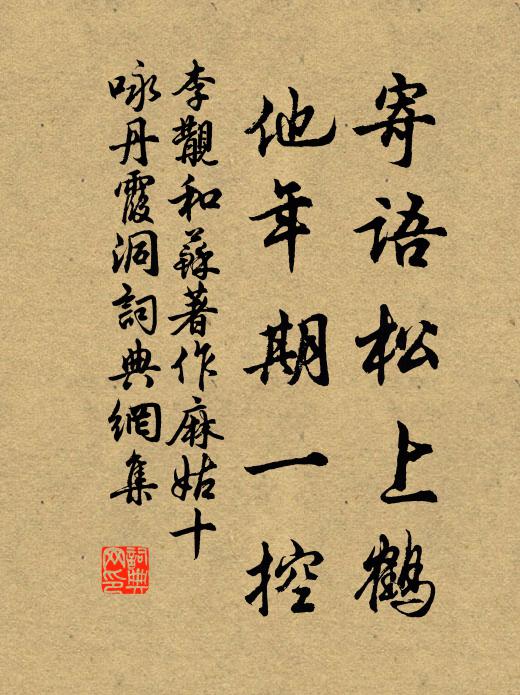 寄语松上鹤
他年期一控
李覯和蘇著作麻姑十
咏丹霞洞詞典網集
詞典网印